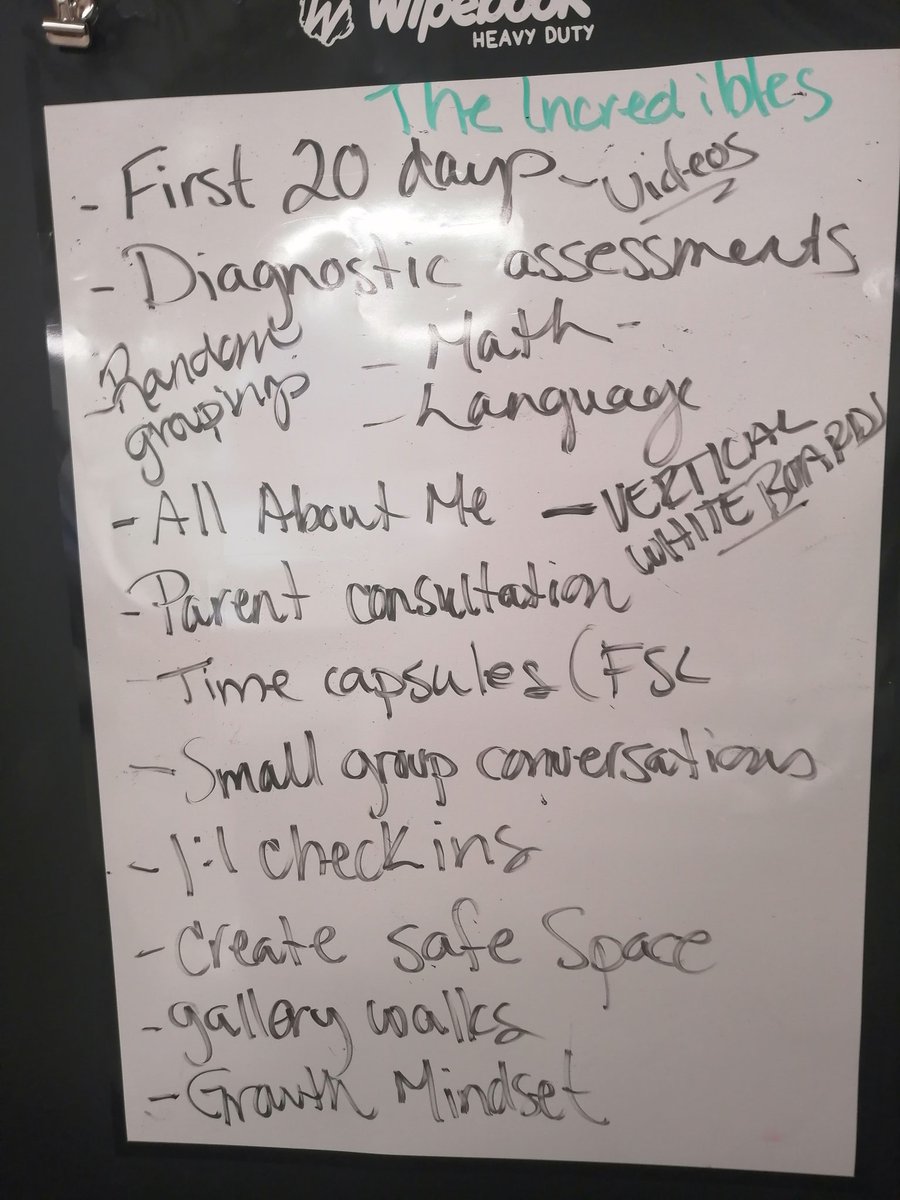 Wipebook
HEAVY DUTY
The Incredibles
- First 20 days - videos
- Diagnostic assessments
- Random
groupings
- Math -
- Language
- All About Me
- VERTICAL
WHITE BOARDS
- Parent consultation
- Time capsules (FSL
- Small group conversations
- 1:1 check ins
- Create safe Space
- gallery walks
- Growth Mindset